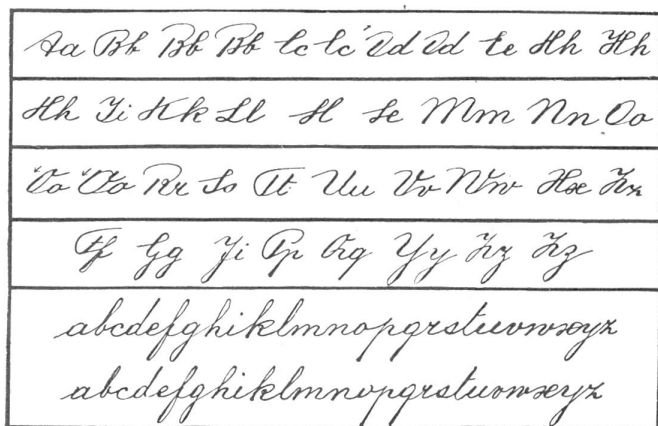 Aa Bb Bb Bb Cc Cc Dd Dd Ee Hh Hh
Hh Ii Kk Ll Mm Nn Oo
Oo Oo Rr Ss Tt Uu Vv Ww Xx Zz
Ff Gg Ji Pp Qq Yy Zz Zz
abcdefghiklmnopqrstuvwxyz
abcdefghiklmnopqrstuvwxyz